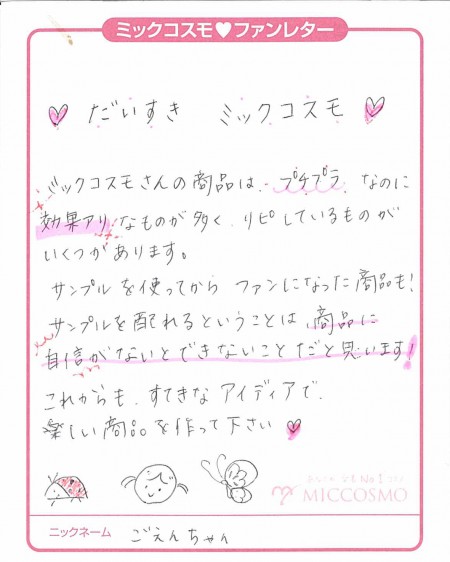 ミックコスモ♥ファンレター
♡ だいすき ミックコスモ ♡
ミックコスモさんの商品は、プチプラ なのに
効果アリ!なものが多く、リピしているものが
いくつかあります。
サンプルを使ってから ファンになった商品も!
サンプルを配れるということは、商品に
自信がないとできないことだと思います!
これからも、すてきなアイディアで、
楽しい商品を作って下さい♥
No1
MICCOSMO
ニックネーム ごえんちゃん